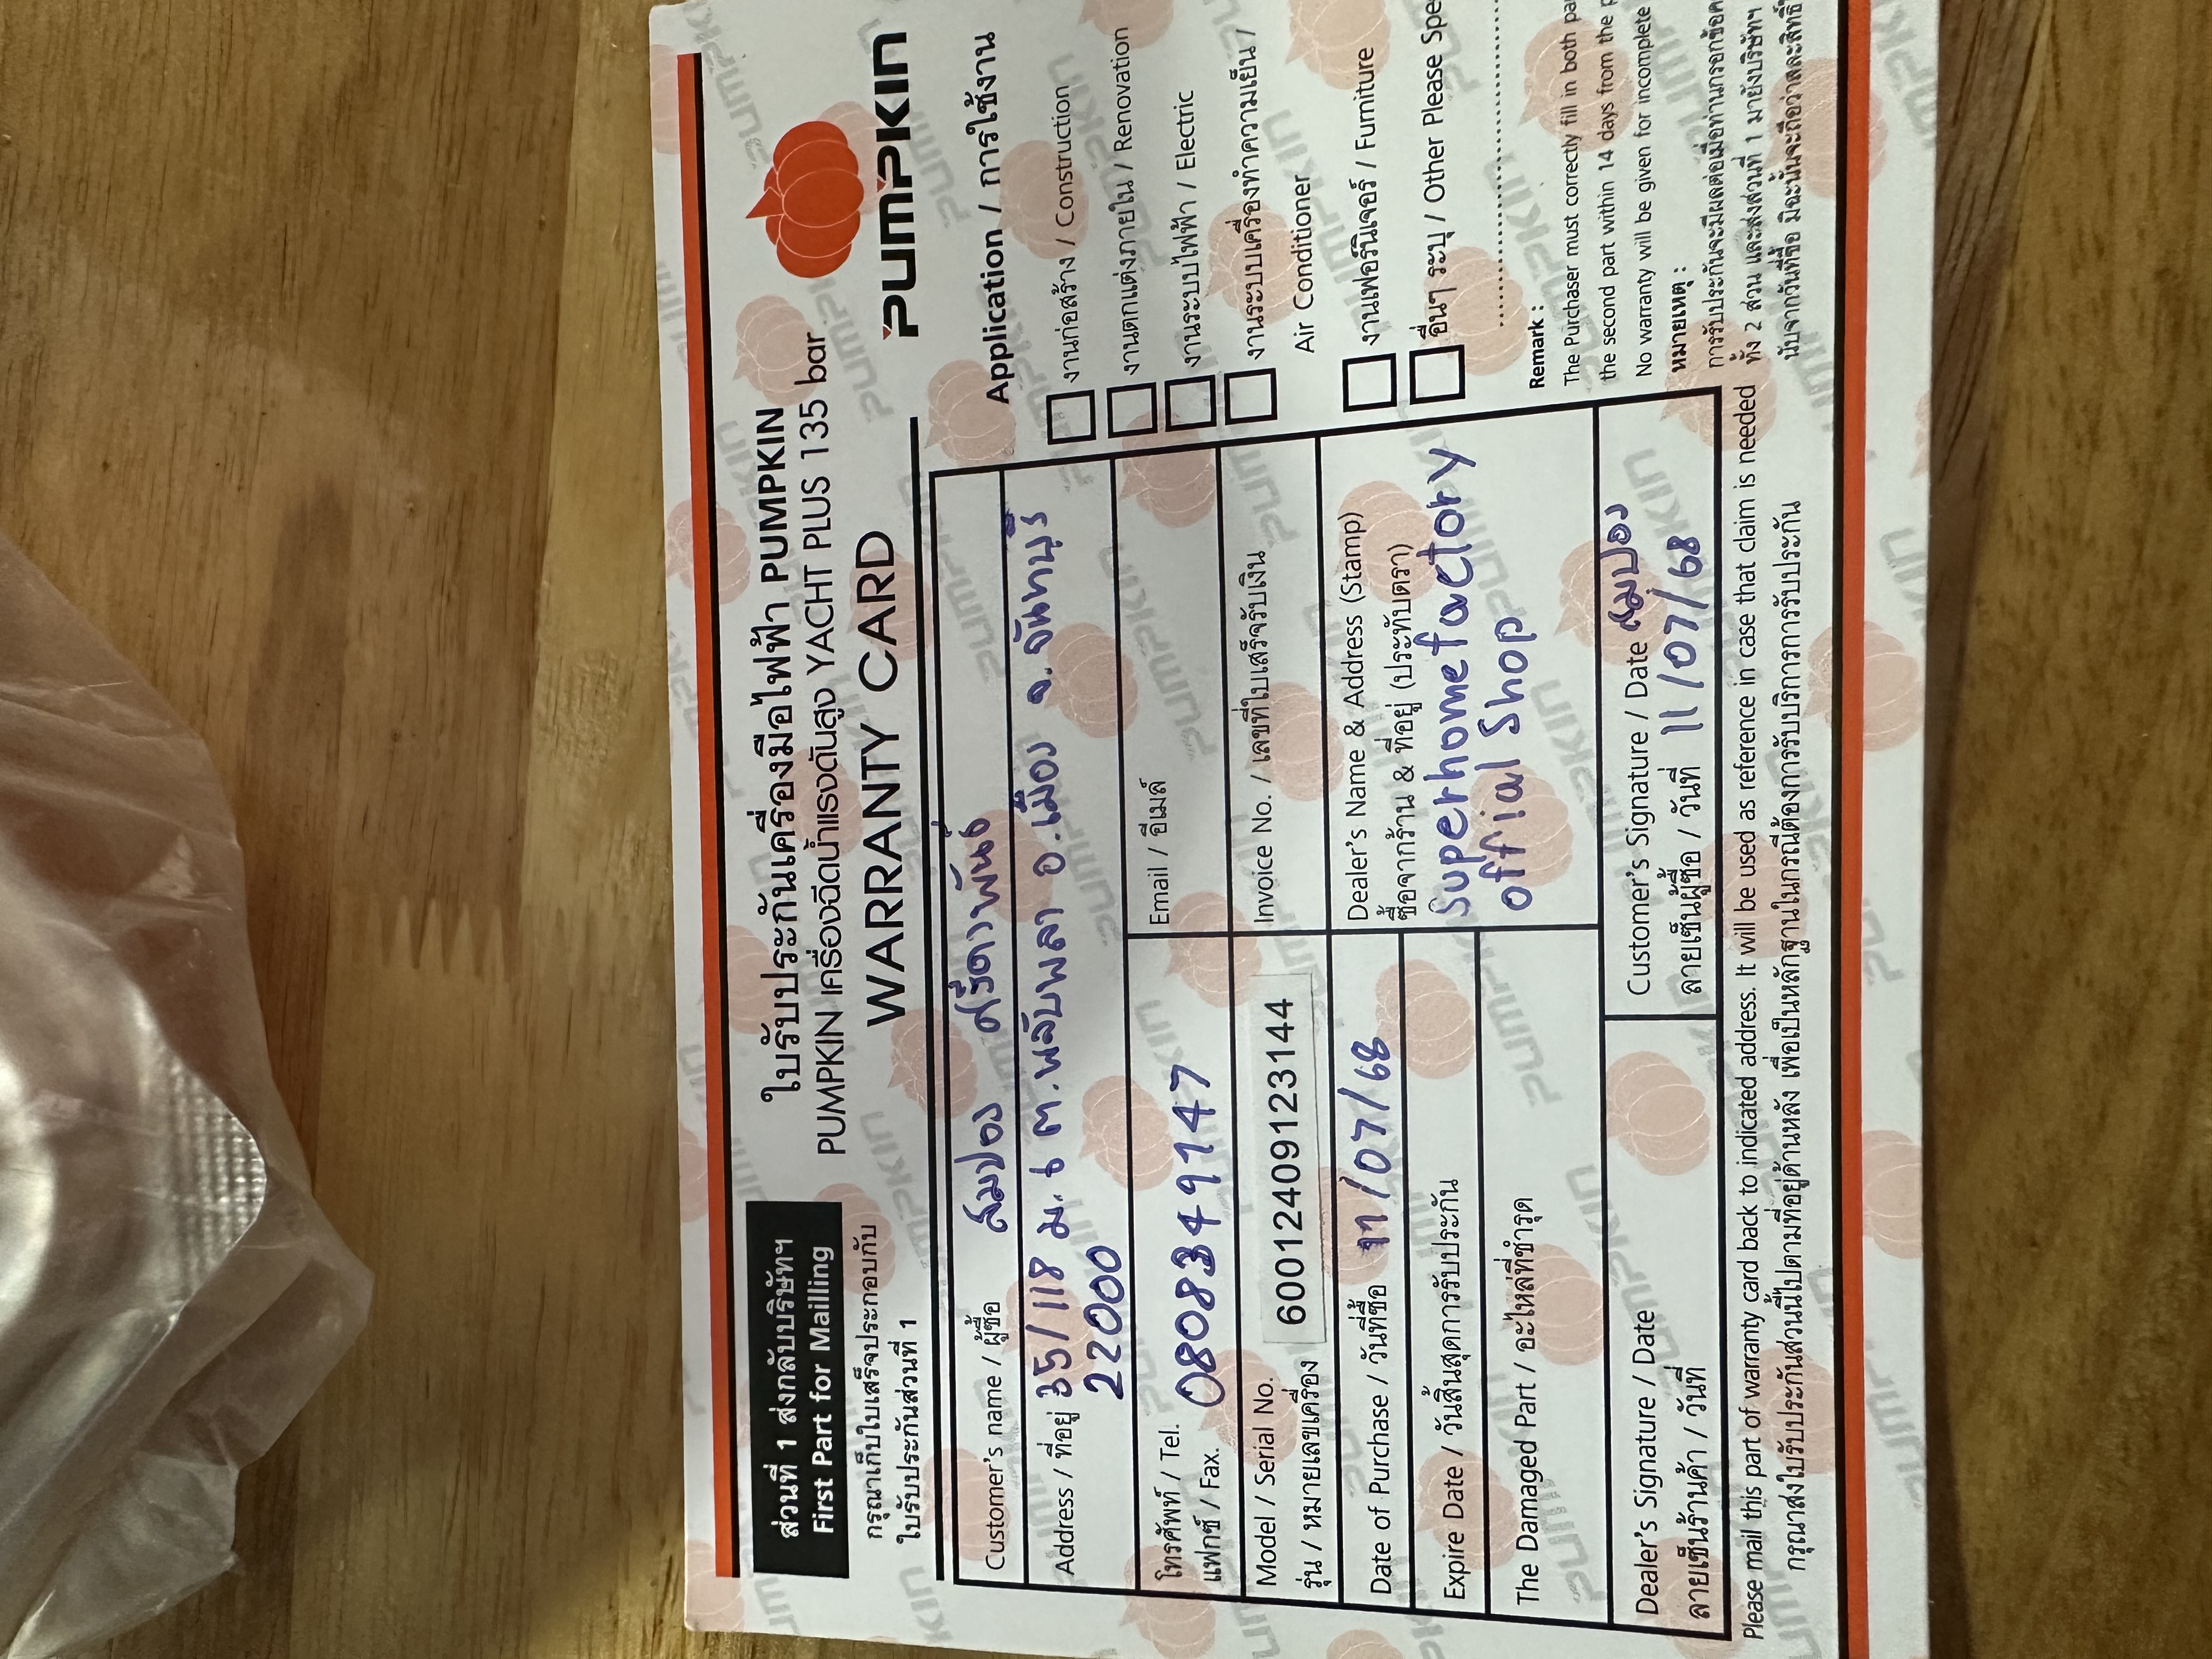 ส่วนที่ 1 ส่งกลับบริษัทฯ
First Part for Mailling
กรุณาเก็บใบเสร็จประกอบกับ
ใบรับประกันส่วนที่ 1
ใบรับประกันเครื่องมือไฟฟ้า PUMPKIN
PUMPKIN เครื่องฉีดน้ำแรงดันสูง YACHT PLUS 135 bar
WARRANTY CARD
PUMPKIN
Customer's name / ผู้ซื้อ สมปอง ศรีดาวพันธ์
Address / ที่อยู่ 35/118 ม.6 ต.พลับพลา อ.เมือง จ.จันทบุรี
22000
โทรศัพท์ / Tel. 0808349147
แฟกซ์ / Fax.
Email / อีเมล์
Model / Serial No.
รุ่น / หมายเลขเครื่อง 60012409123144
Invoice No. / เลขที่ใบเสร็จรับเงิน
Date of Purchase / วันที่ซื้อ 11/07/68
Expire Date / วันสิ้นสุดการรับประกัน
The Damaged Part / อะไหล่ที่ชำรุด
Dealer's Name & Address (Stamp)
ซื้อจากร้าน & ที่อยู่ (ประทับตรา)
Superhomefactory
official Shop
Dealer's Signature / Date
ลายเซ็นร้านค้า / วันที่
Customer's Signature / Date สมปอง
ลายเซ็นผู้ซื้อ / วันที่ 11/07/68
Application / การใช้งาน
งานก่อสร้าง / Construction
งานตกแต่งภายใน / Renovation
งานระบบไฟฟ้า / Electric
งานระบบเครื่องทำความเย็น /
Air Conditioner
งานเฟอร์นิเจอร์ / Furniture
อื่นๆ ระบุ / Other Please Spe
Remark :
The Purchaser must correctly fill in both pa
the second part within 14 days from the p
No warranty will be given for incomplete
หมายเหตุ :
การรับประกันจะมีผลต่อเมื่อท่านกรอกข้อค
ทั้ง 2 ส่วน และส่งส่วนที่ 1 มายังบริษัทฯ
นับจากวันที่ซื้อ มิฉะนั้นจะถือว่าสละสิทธิ์
Please mail this part of warranty card back to indicated address. It will be used as reference in case that claim is needed
กรุณาส่งใบรับประกันส่วนนี้ไปตามที่อยู่ด้านหลัง เพื่อเป็นหลักฐานในกรณีต้องการรับบริการการรับประกัน